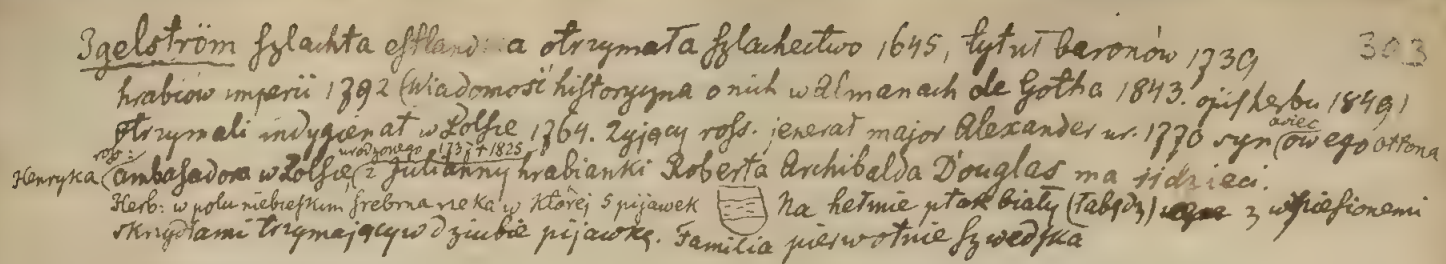 Igelström szlachta estlandzka otrzymała szlachectwo 1645, tytuł baronów 1739 303
hrabiów imperii 1792 (Wiadomość historyczna o nich w Almanach de Gotha 1843. opis herbu 1849)
otrzymali indygienat w Polsce 1764. Żyjący ross. jenerał major Alexander ur. 1770 syn (owego Ottona
ross: urodzonego 1737 † 1825
Henryka (ambasadora w Polsce, z Julianny hrabianki Roberta Archibalda Douglas ma dzieci.
Herb: w polu niebieskim srebrna rzeka w której 5 pijawek Na hełmie ptak biały (łabędź) z wzniesionemi
skrzydłami trzymający w dziubie pijawkę. Familia pierwotnie szwedzka